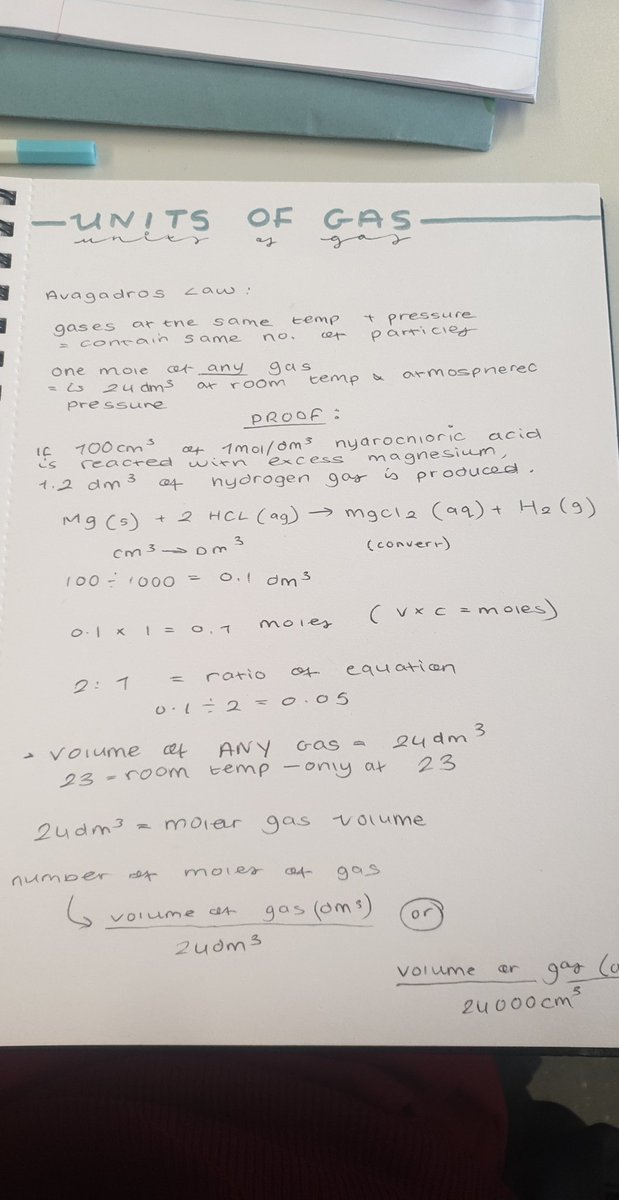 UNITS OF GAS
units of gas
Avagadros Law:
gases at the same temp + pressure
= contain same no. of particles
one mole of any gas
= is 24dm³ at room temp & atmospherec
pressure
PROOF:
If 100cm³ of 1mol/dm³ hydrochloric acid
is reacted with excess magnesium,
1.2 dm³ of hydrogen gas is produced.
Mg(s) + 2 HCL(aq) → mgcl2 (aq) + H2(g)
cm³ → Dm³ (convert)
100 ÷ 1000 = 0.1 dm³
0.1 x 1 = 0.1 moles (v x c = moles)
2:1 = ratio of equation
0.1 ÷ 2 = 0.05
volume of ANY Gas = 24dm³
23 = room temp - only at 23
24dm³ = molar gas volume
number of moles of gas
↳ volume of gas (dm³) or
24dm³
volume or gas (
24000cm³